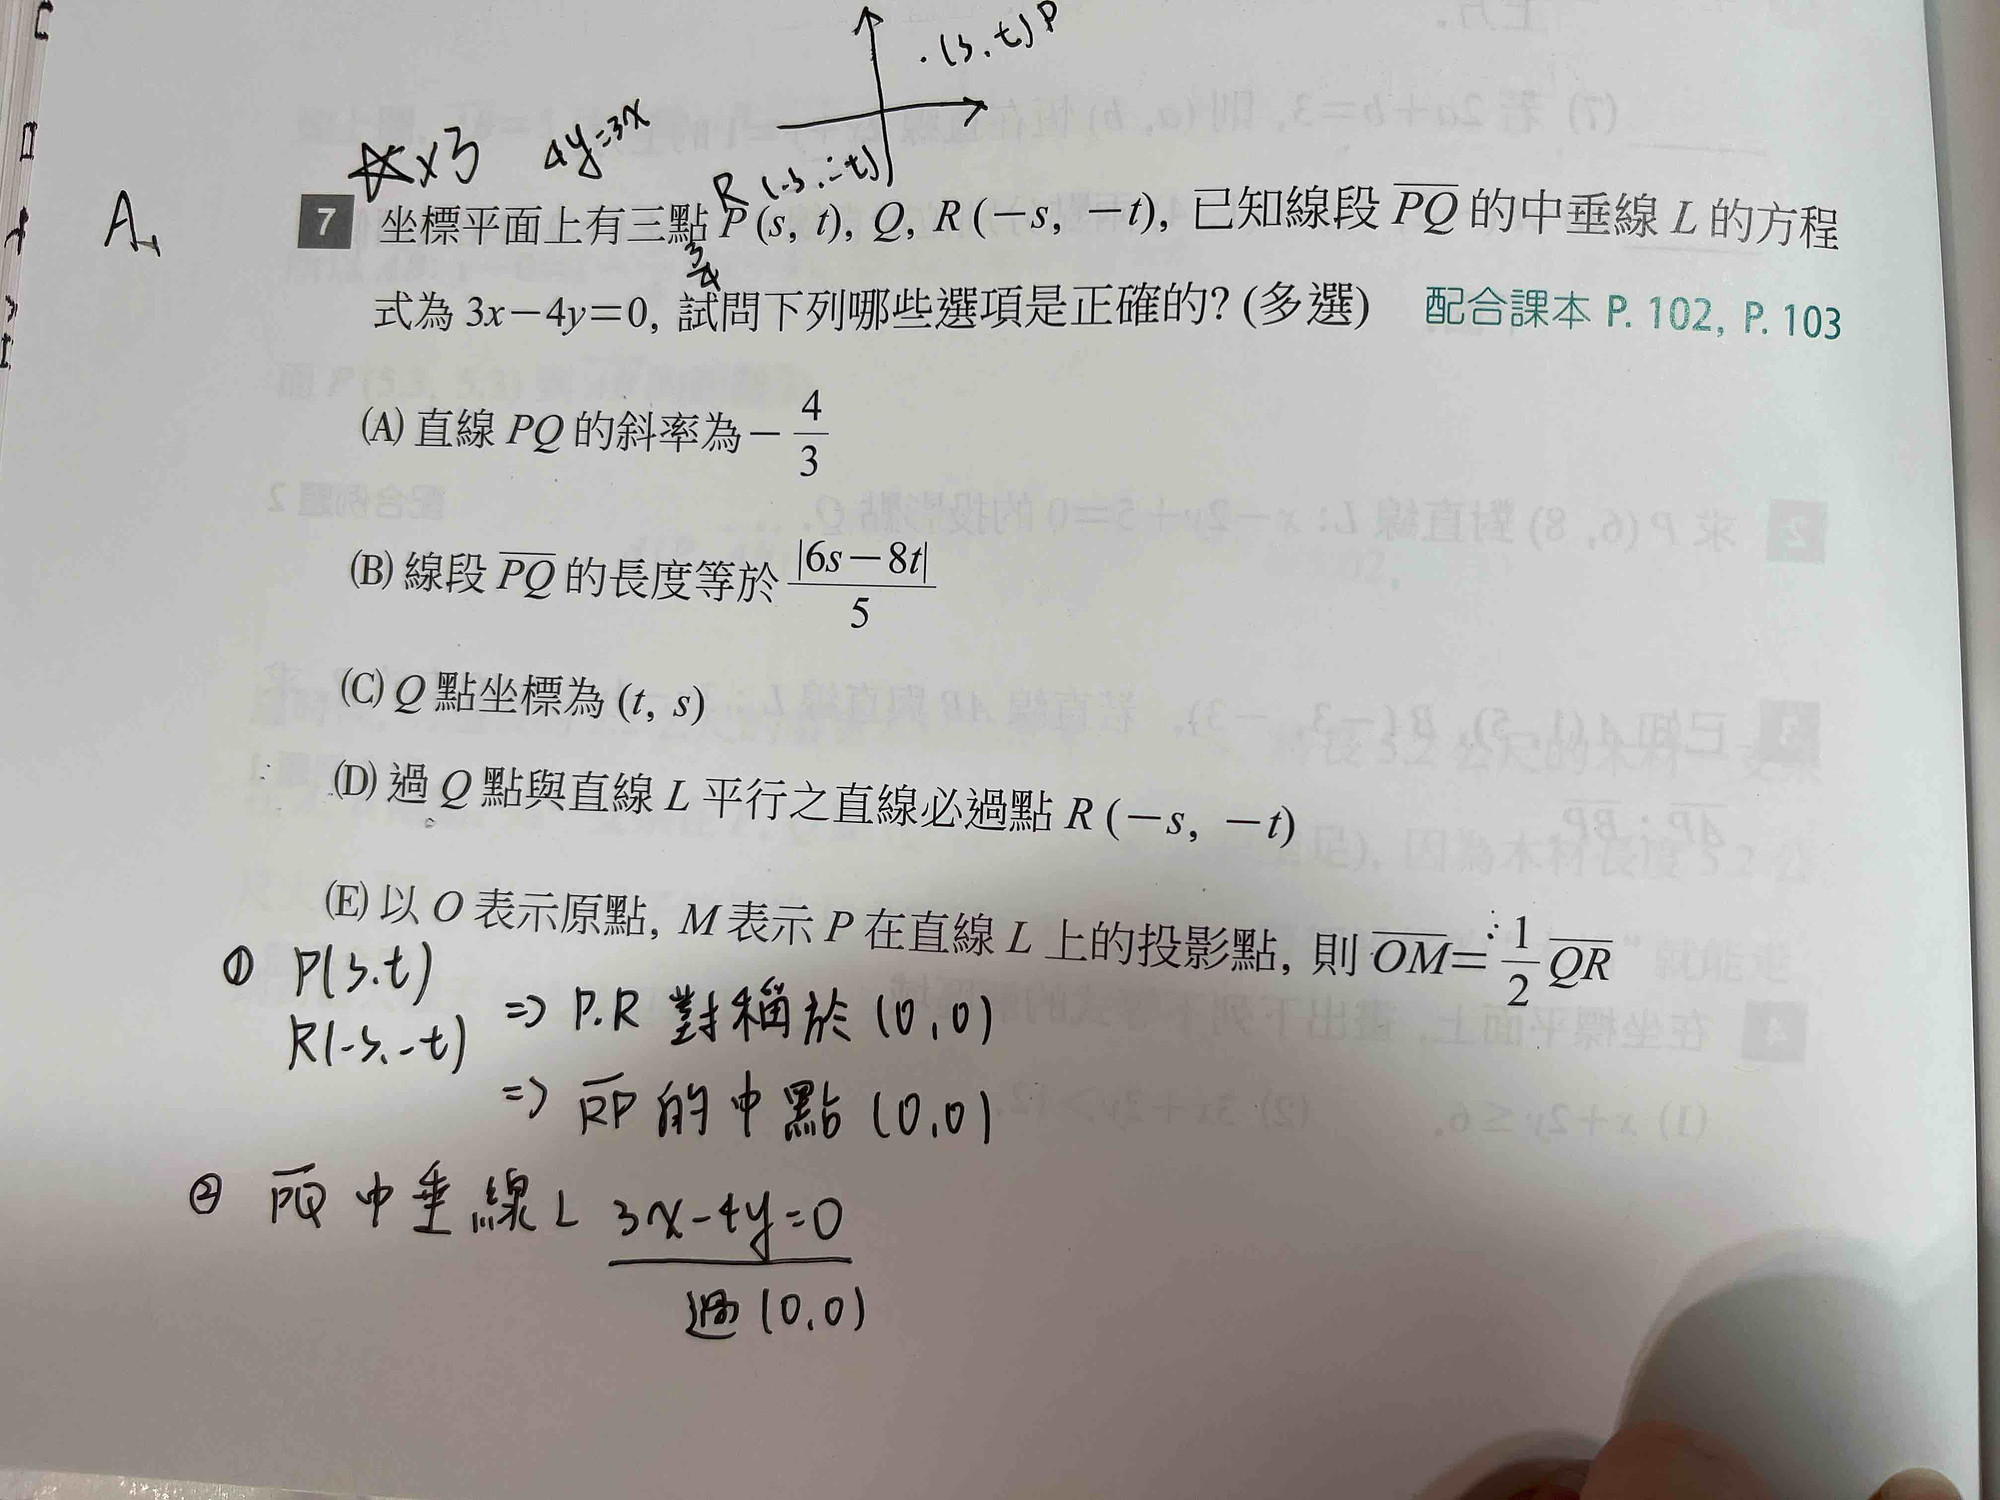 .(s,t) P
☆×3 4y=3x
R(-s,-t)
A,
7 坐標平面上有三點 P(s, t), Q, R(-s, -t), 已知線段 PQ 的中垂線 L 的方程
3/4
式為 3x-4y=0, 試問下列哪些選項是正確的? (多選) 配合課本 P. 102, P. 103
(A) 直線 PQ 的斜率為 -4/3
(B) 線段 PQ 的長度等於 |6s-8t|/5
(C) Q 點坐標為 (t, s)
(D) 過 Q 點與直線 L 平行之直線必過點 R(-s, -t)
(E) 以 O 表示原點, M 表示 P 在直線 L 上的投影點, 則 OM=1/2 QR
① P(s.t)
R(-s.-t) => P.R 對稱於 (0,0)
=> RP 的中點 (0,0)
② PQ 中垂線 L 3x-4y=0
過 (0,0)